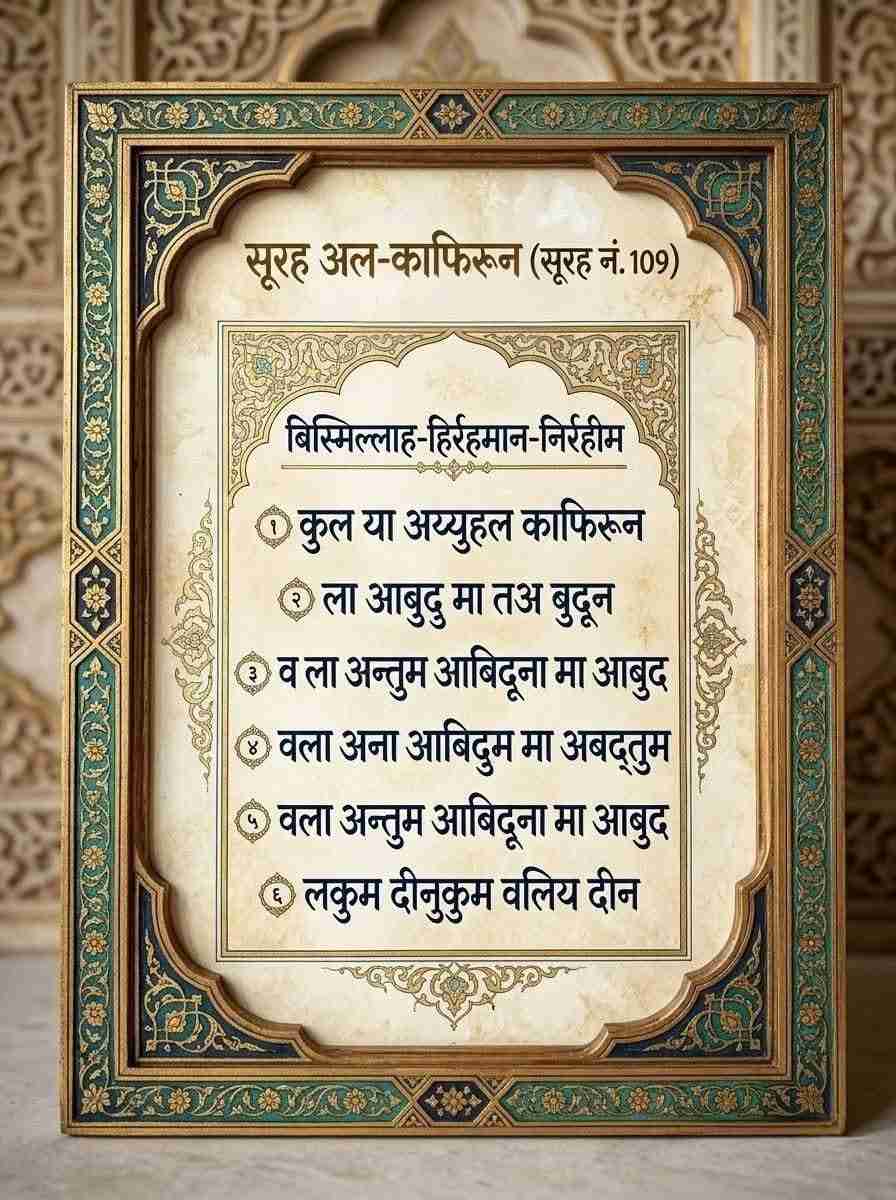 सूरह अल-काफिरून (सूरह नं. 109)
बिस्मिल्लाह-हिर्रहमान-निर्रहीम
१ कुल या अय्युहल काफिरून
२ ला आबुदु मा तअ बुदून
३ व ला अन्तुम आबिदूना मा आबुद
४ वला अना आबिदुम मा अबद्तुम
५ वला अन्तुम आबिदूना मा आबुद
६ लकुम दीनुकुम वलिय दीन